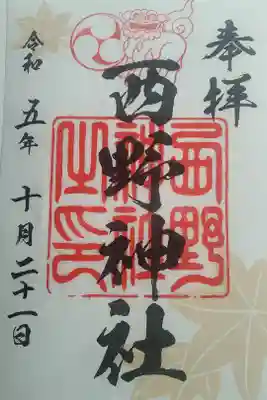 奉拝
西野神社
西野
神社
之印
令和五年十月二十一日